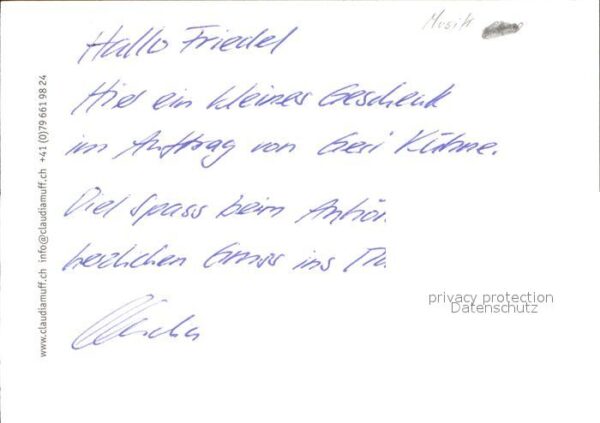 Musik
Hallo Friedel
Hier ein kleines Geschenk
im Auftrag von Geri Kühne.
Viel Spass beim Anhör
herzlichen Gruss ins
Claudia
www.claudiamuff.ch info@claudiamuff.ch +41 (0)79 661 98 24
privacy protection
Datenschutz